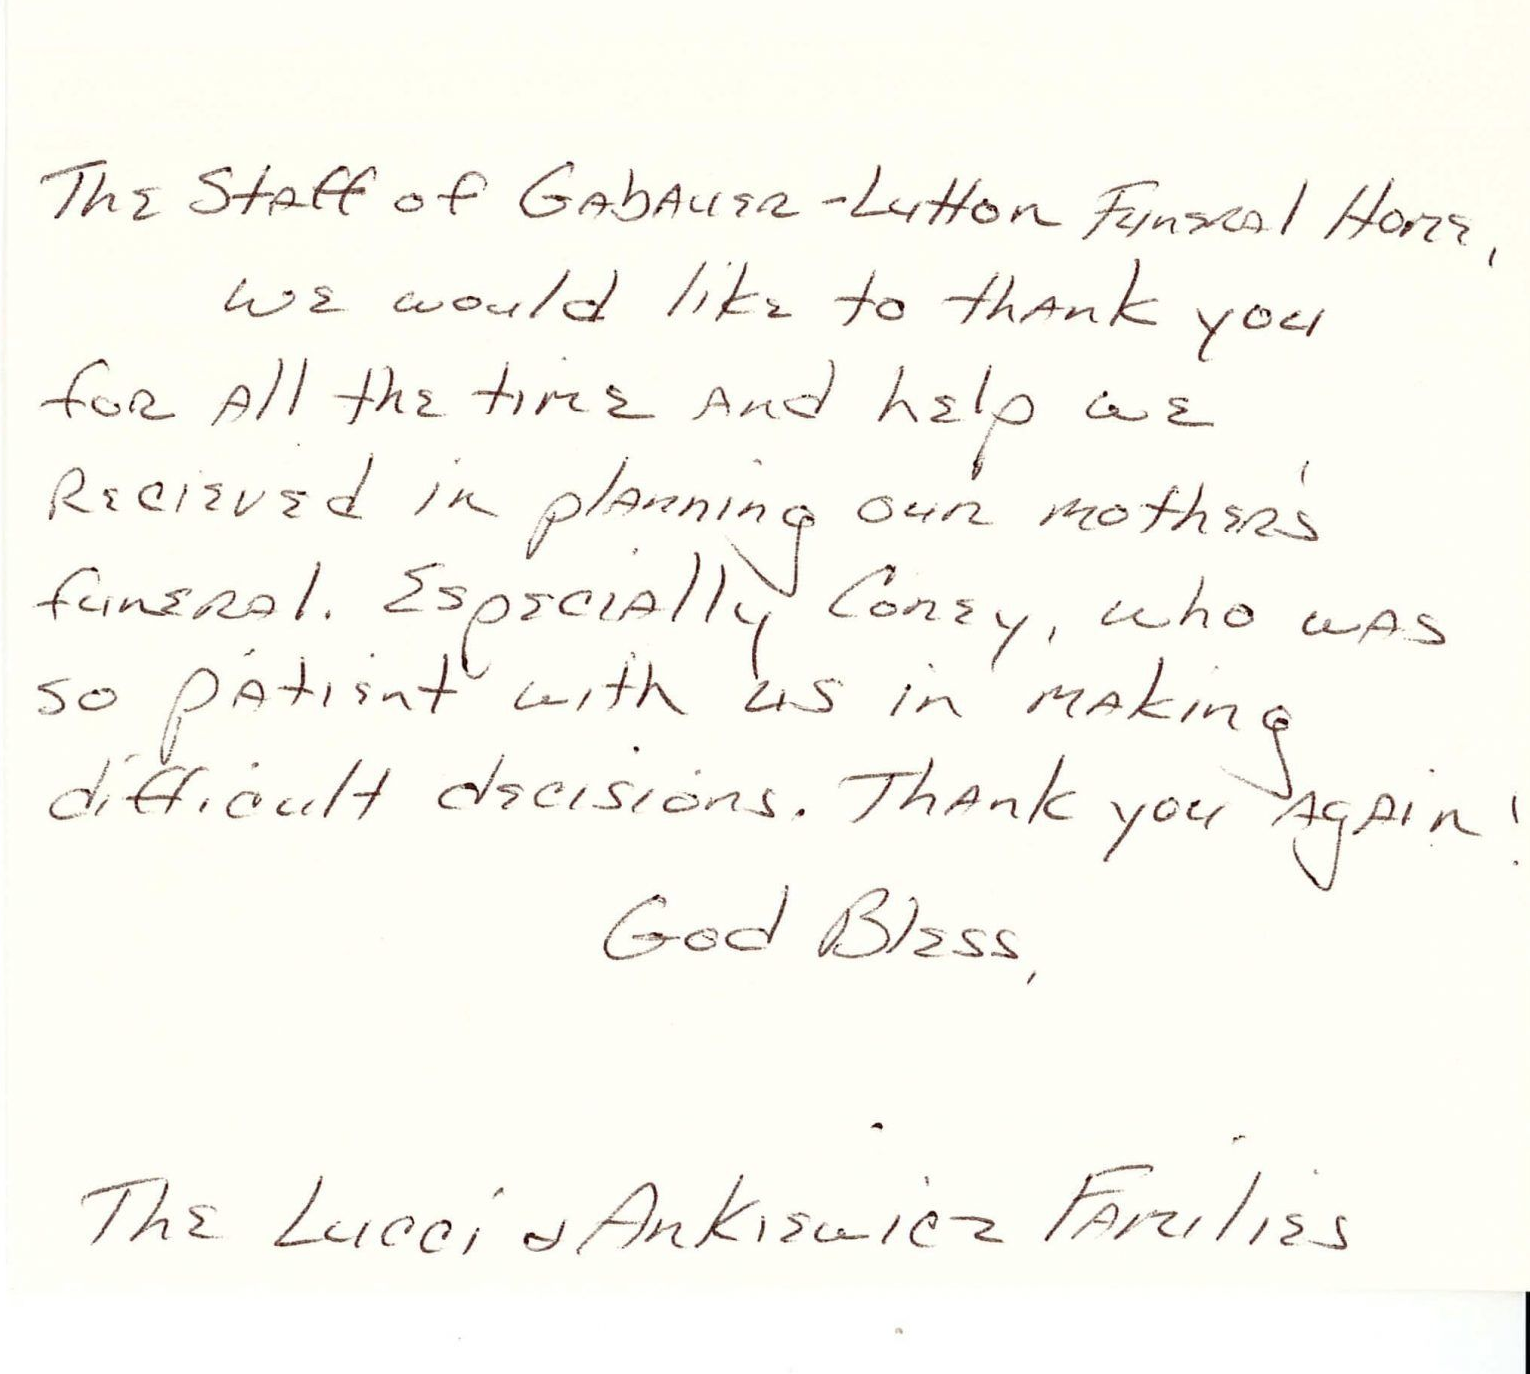 The Staff of Gabauer-Lutton Funeral Home,
we would like to thank you
for all the time and help we
Recieved in planning our mother's
funeral. Especially Corey, who was
so patient with us in making
difficult decisions. Thank you Again!
God Bless,
The Lucci & Ankiewicz Families